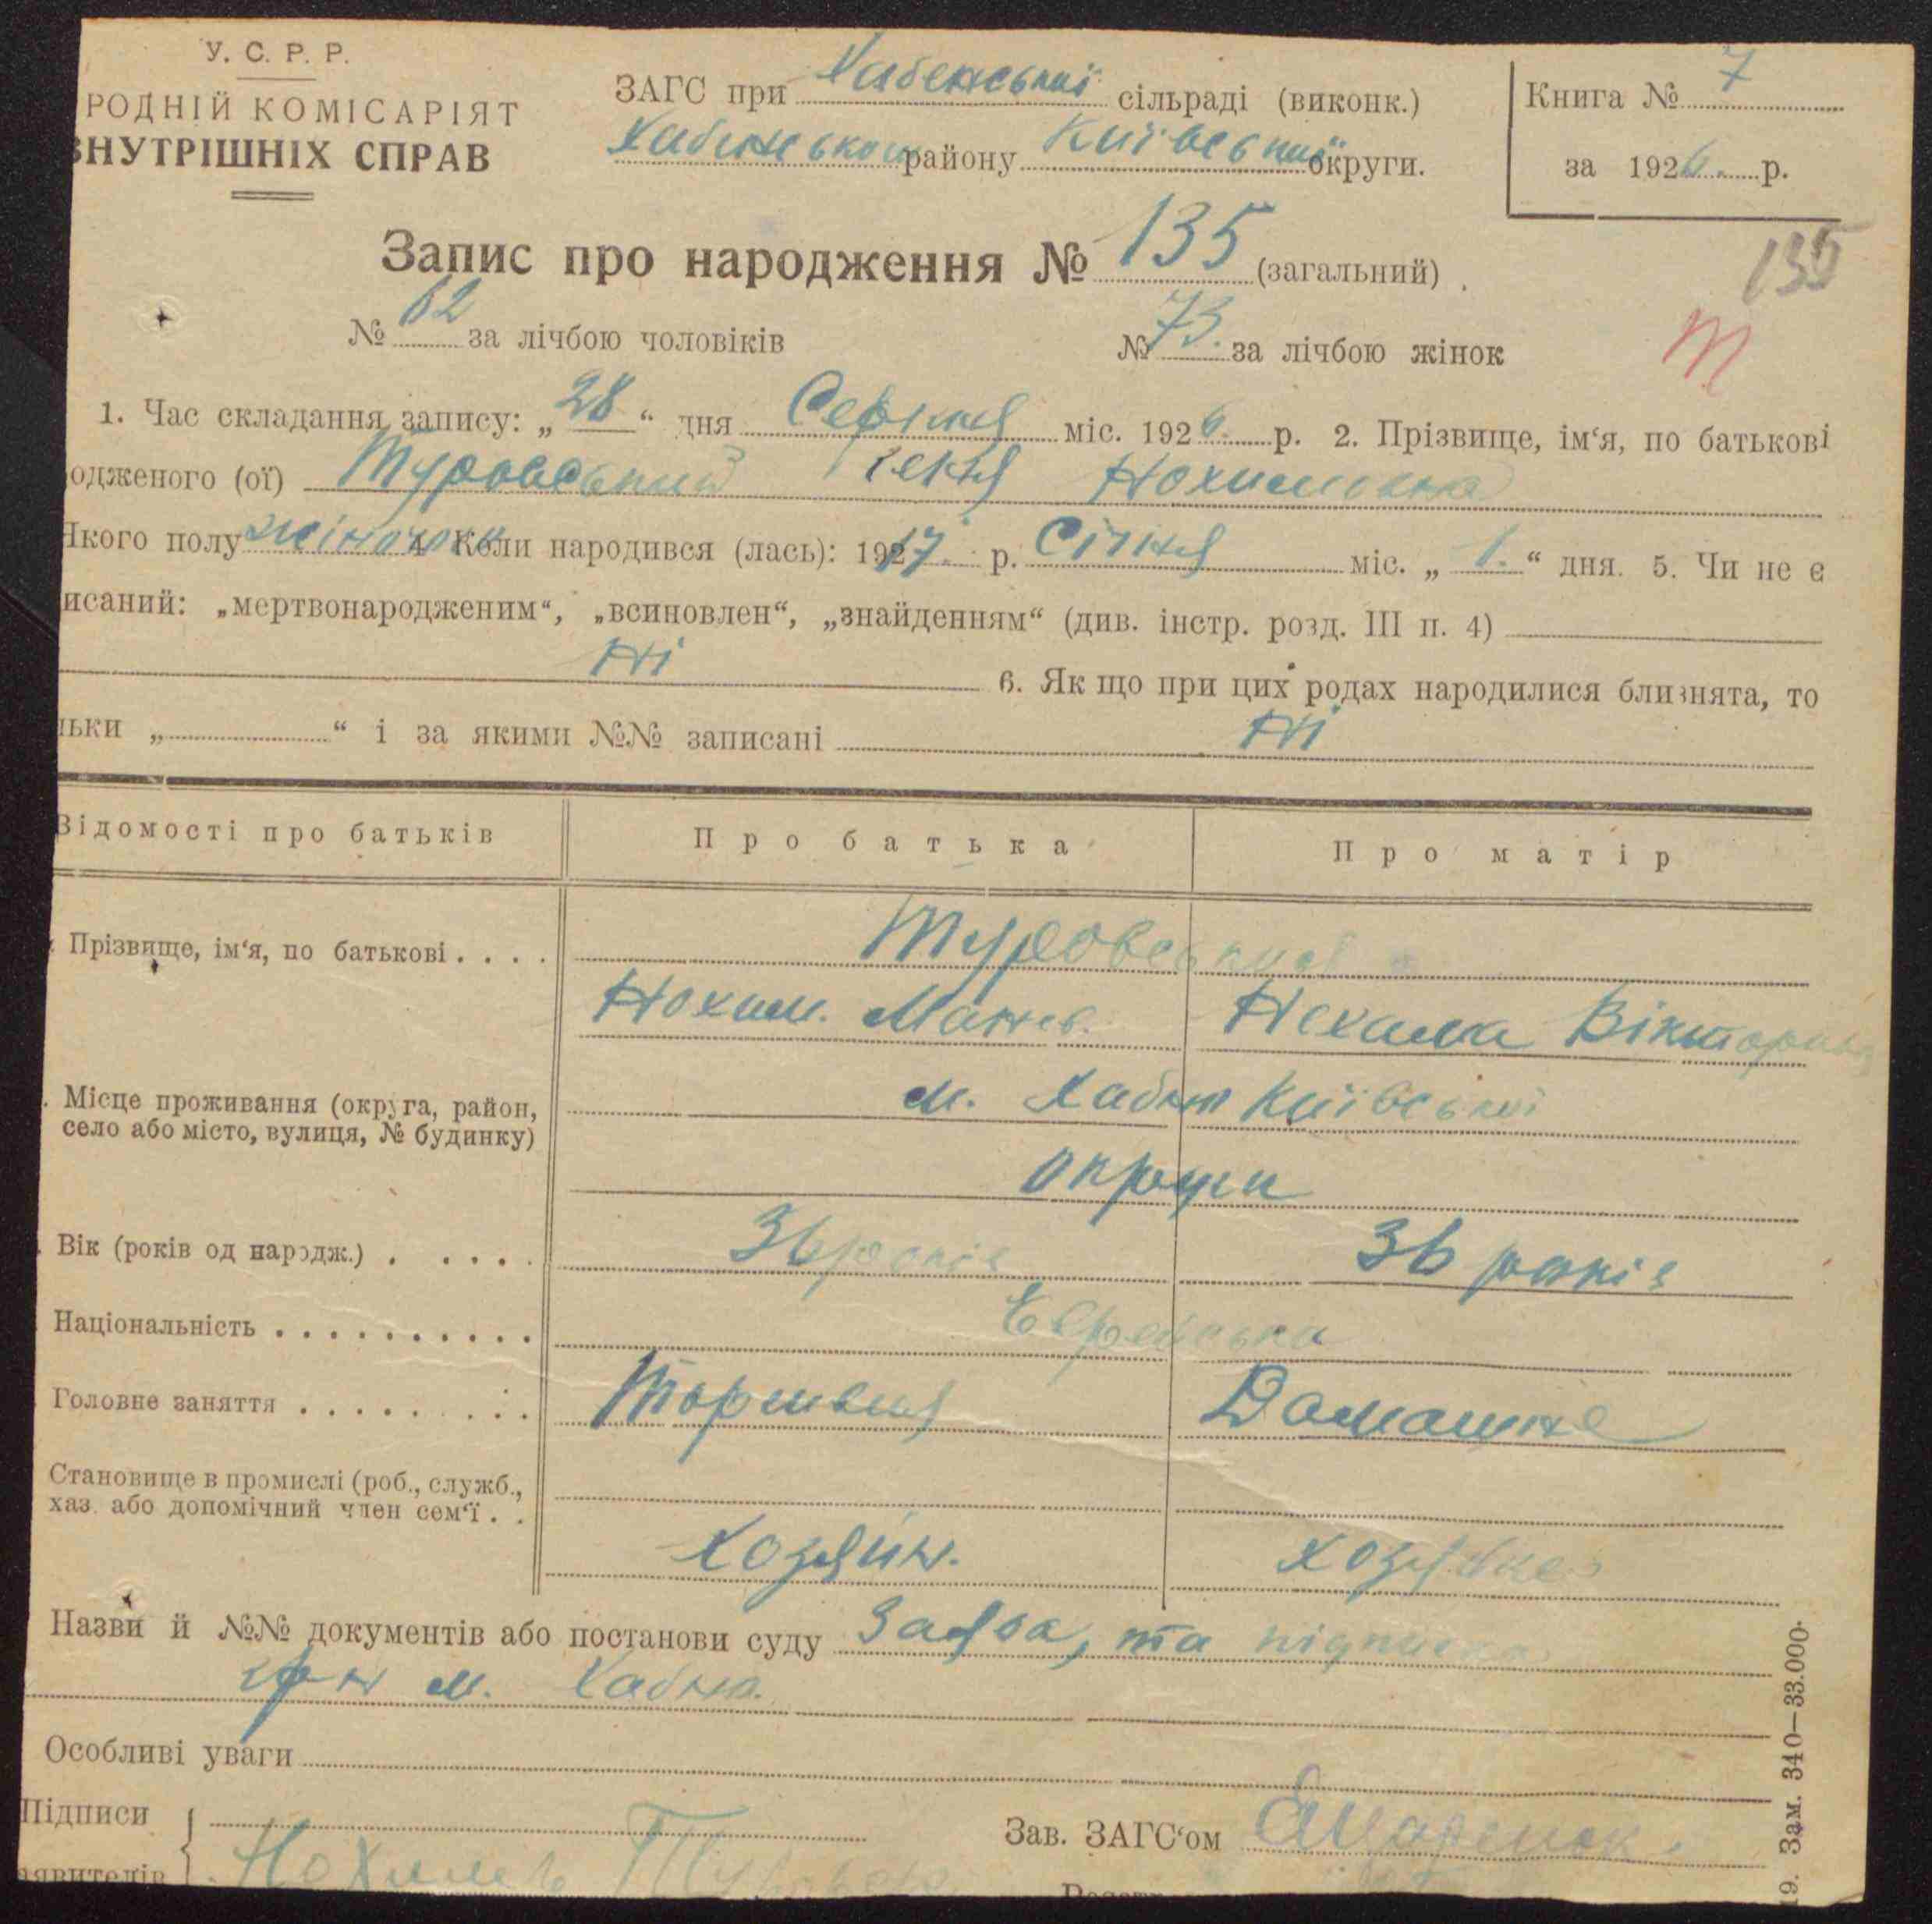 У. С. Р. Р.
РОДНІЙ КОМІСАРІЯТ
ВНУТРІШНІХ СПРАВ
ЗАГС при Хабенській сільраді (виконк.)
Хабенського району Київської округи.
Книга № 7
за 1926 р.
Запис про народження № 135 (загальний)
135
№ 62 за лічбою чоловіків № 73. за лічбою жінок
1. Час складання запису: „28“ дня Серпня міс. 1926. р. 2. Прізвище, ім‘я, по батькові
одженого (ої) Туровський Нохимовна
Якого полу жіночого 4. Коли народився (лась): 1917. р. Січня міс. „1.“ дня. 5. Чи не є
исаний: „мертвонародженим“, „всиновлен“, „знайденням“ (див. інстр. розд. III п. 4)
Ні 6. Як що при цих родах народилися близнята, то
льки „ “ і за якими №№ записані Ні
Відомості про батьків Про батька Про матір
Прізвище, ім‘я, по батькові . . . . Туровський
Нохим. Манев. Нехама Вікторовна
Місце проживання (округа, район,
село або місто, вулиця, № будинку)
м. Хабно Київської
округи
Вік (років од народж.) . . . . . 36 років 36 років
Національність . . . . . . . . . . Єврейська
Головне заняття . . . . . . . . . Торговля Домашнє
Становище в промислі (роб., служб.,
хаз. або допомічний член сем‘ї . .
Хозяїн. Хозяйка
Назви й №№ документів або постанови суду Заява, та підписка
гр-н м. Хабно.
Особливі уваги
Підписи
аявителів
Нохим Туровск
Зав. ЗАГС‘ом
19. Зам. 340—33.000.